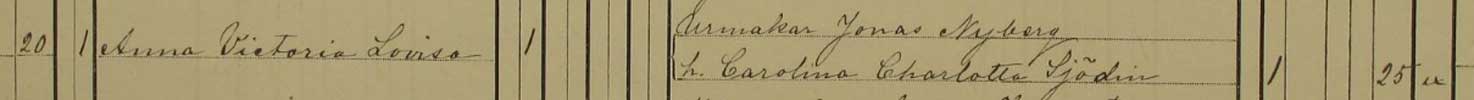 Urmakar Jonas Nyberg
20 1 Anna Victoria Lovisa 1
h. Carolina Charlotta Sjödin 1 25